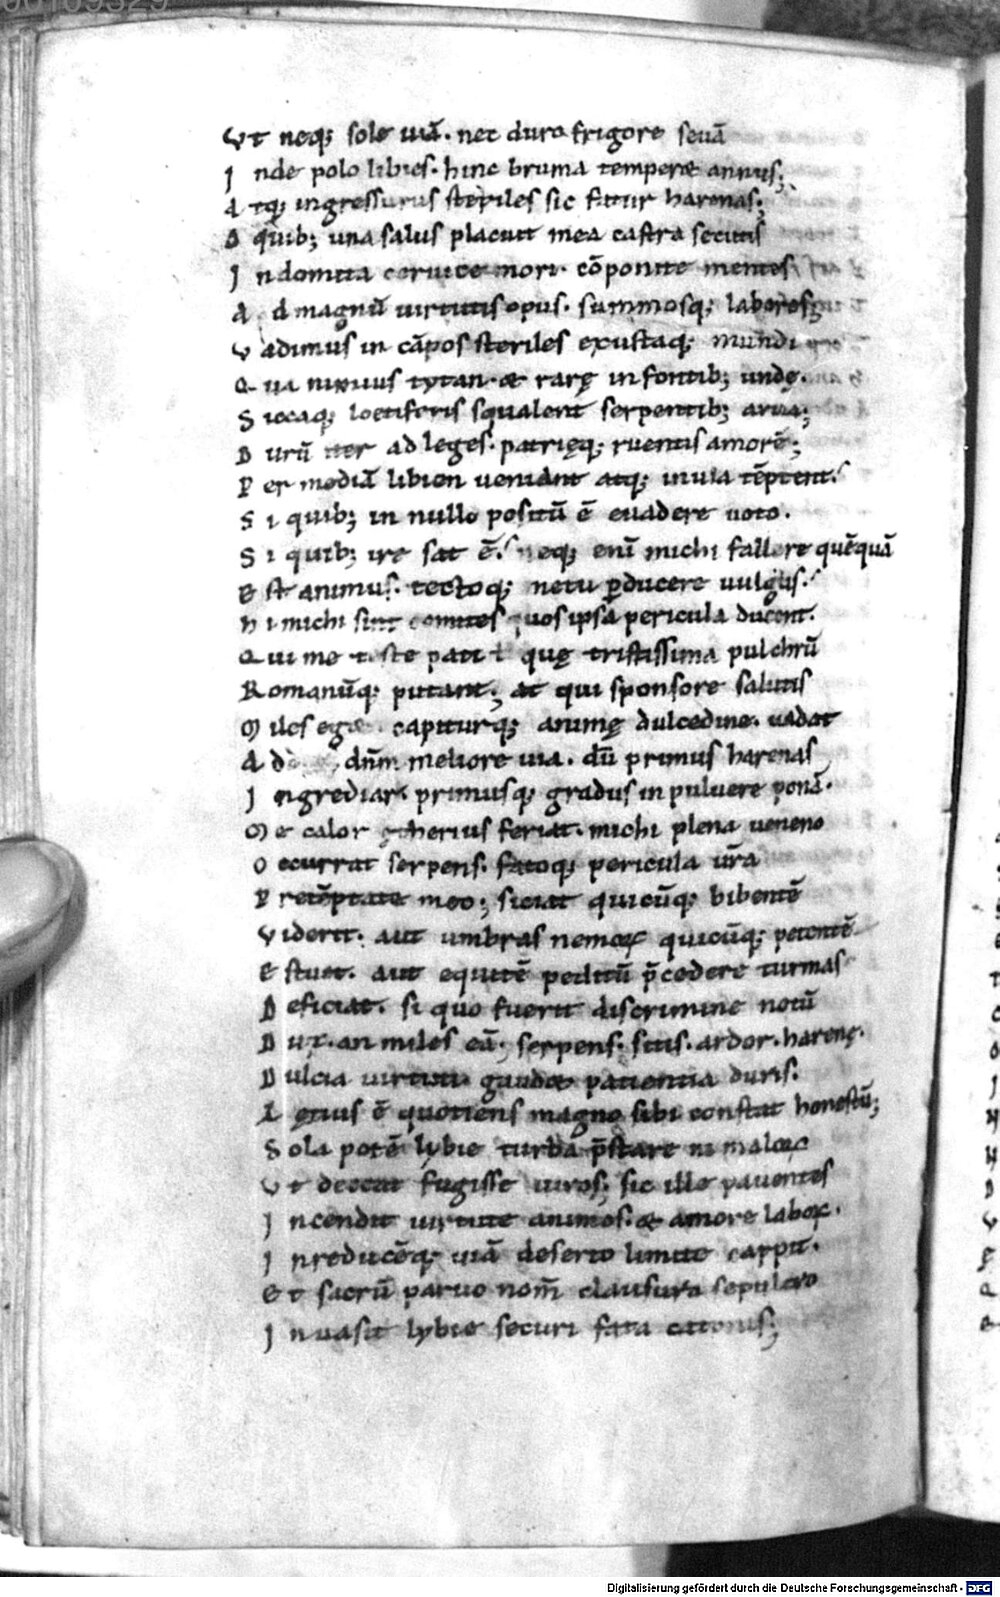 00109329
Vt neq; sole uiā. nec duro frigore seuā
Inde polo libies. hinc bruma temperæ annus;
Atq; ingressurus steriles sic fatur harenas;
O quib; una salus placuit mea castra secutis
Indomita ceruice mori. cōponite mentes
Ad magnū uirtutis opus. summosq; labores
Vadimus in cāpos steriles exustaq; mundi
Qua nimius tytan. & rarę in fontib; undę.
Siccaq; loetiferis squalent serpentib; arua;
Durū iter ad leges. patrięq; ruentis amorē;
Per mediā libien ueniant atq; inuia tēptent.
Si quib; in nullo positū ē euadere uoto.
Si quib; ire sat ē. neq; enī michi fallere quēquā
Est animus. tectoq; metu ꝑducere uulgus.
Hi michi sint comites quos ipsa pericula ducent.
Qui me teste pati l quę tristissima pulchrū
Romanūq; putant; at qui sponsore salutis
Miles eg& capiturq; animę dulcedine. uadat
Ad dn̄m meliore uia. dū primus harenas
Ingrediar. primusq; gradus in puluere ponā.
Me calor ętherius feriat. michi plena ueneno
Occurrat serpens. fatoq; pericula ur̄a
Pretēptate meo; siciat quicūq; bibentē
Viderit. aut umbras nemoꝝ quicūq; petentē
Estuet. aut equitē peditū p̄cedere turmas
Deficiat. si quo fuerit discrimine notū
Dux. an miles eā; serpens. sitis. ardor. harenę.
Dulcia uirtuti. gaud& patientia duris.
Lętius ē quotiens magno sibi constat honestū;
Sola potē lybie turba p̄stare maloꝝ
Vt deceat fugisse uiros; sic ille pauentes
Incendit uirtute animos. & amore laboꝝ.
Inreducēq; uiā deserto limite carpit.
Et sacrū paruo nom̄ clausura sepulcro
Inuasit lybie securi fata catonis;
Digitalisierung gefördert durch die Deutsche Forschungsgemeinschaft - DFG